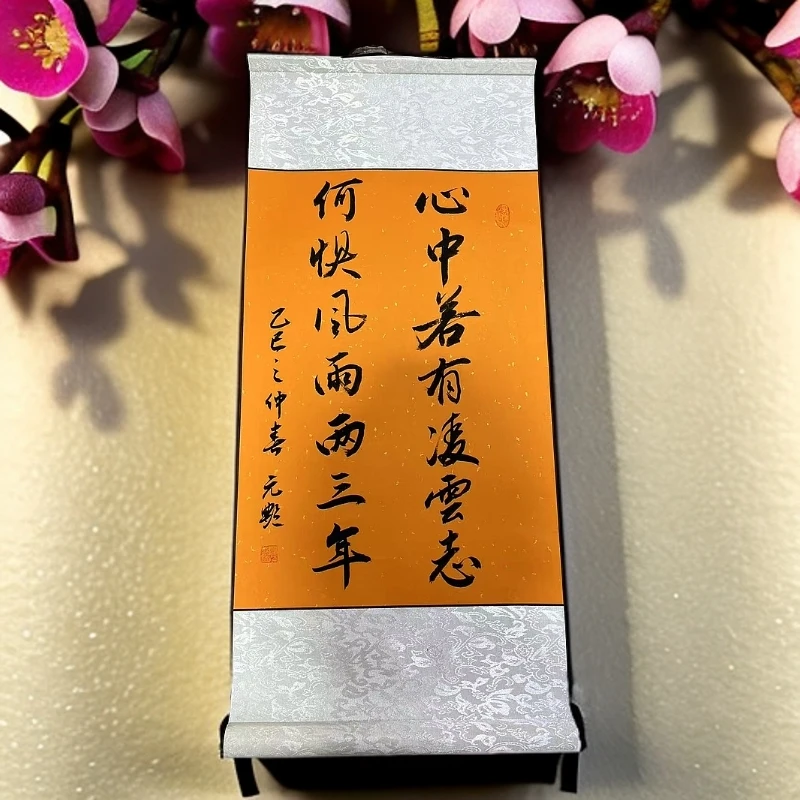 心中若有凌雲志
何惧風雨两三年
乙巳之仲春 元